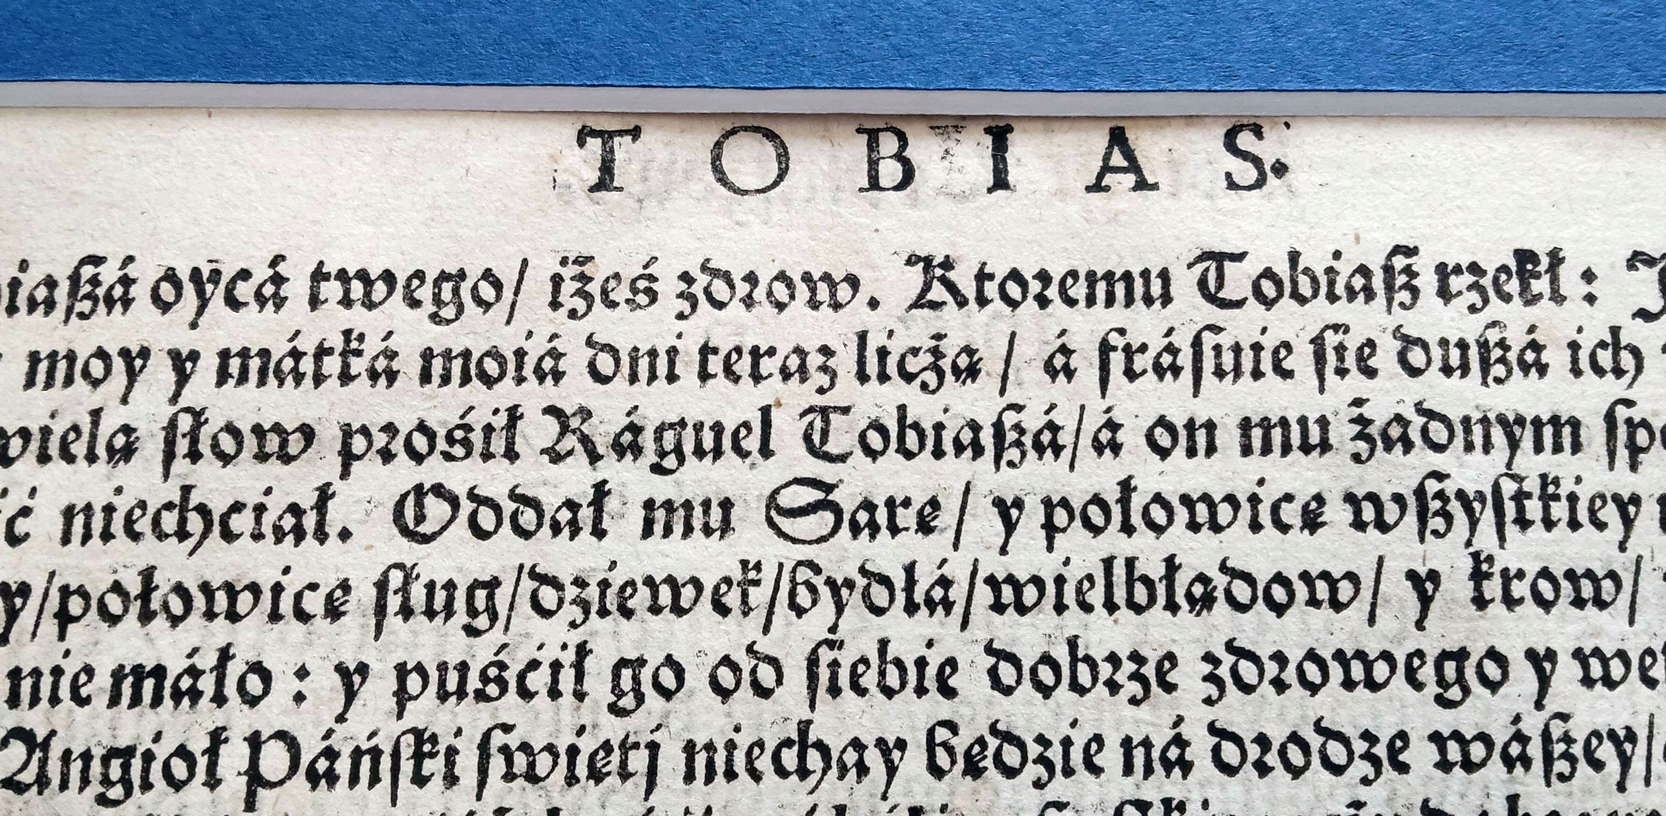 TOBIAS.
oycá twego/ iżeś zdrow. Ktoremu Tobiaſz rzekł:
moy y mátká moiá dni teraz licżą / á fráſuie ſie duſzá ich
wielą ſłow prośił Ráguel Tobiaſzá/á on mu żadnym
niechciał. Oddał mu Sarę/ y połowicę wſzyſtkiey
połowicę ſług/dziewek/bydłá/wielbłądow/ y krow/
nie máło: y puśćił go od ſiebie dobrze zdrowego y
Angioł Páńſki ſwiętj niechay będzie ná drodze wáſzey/